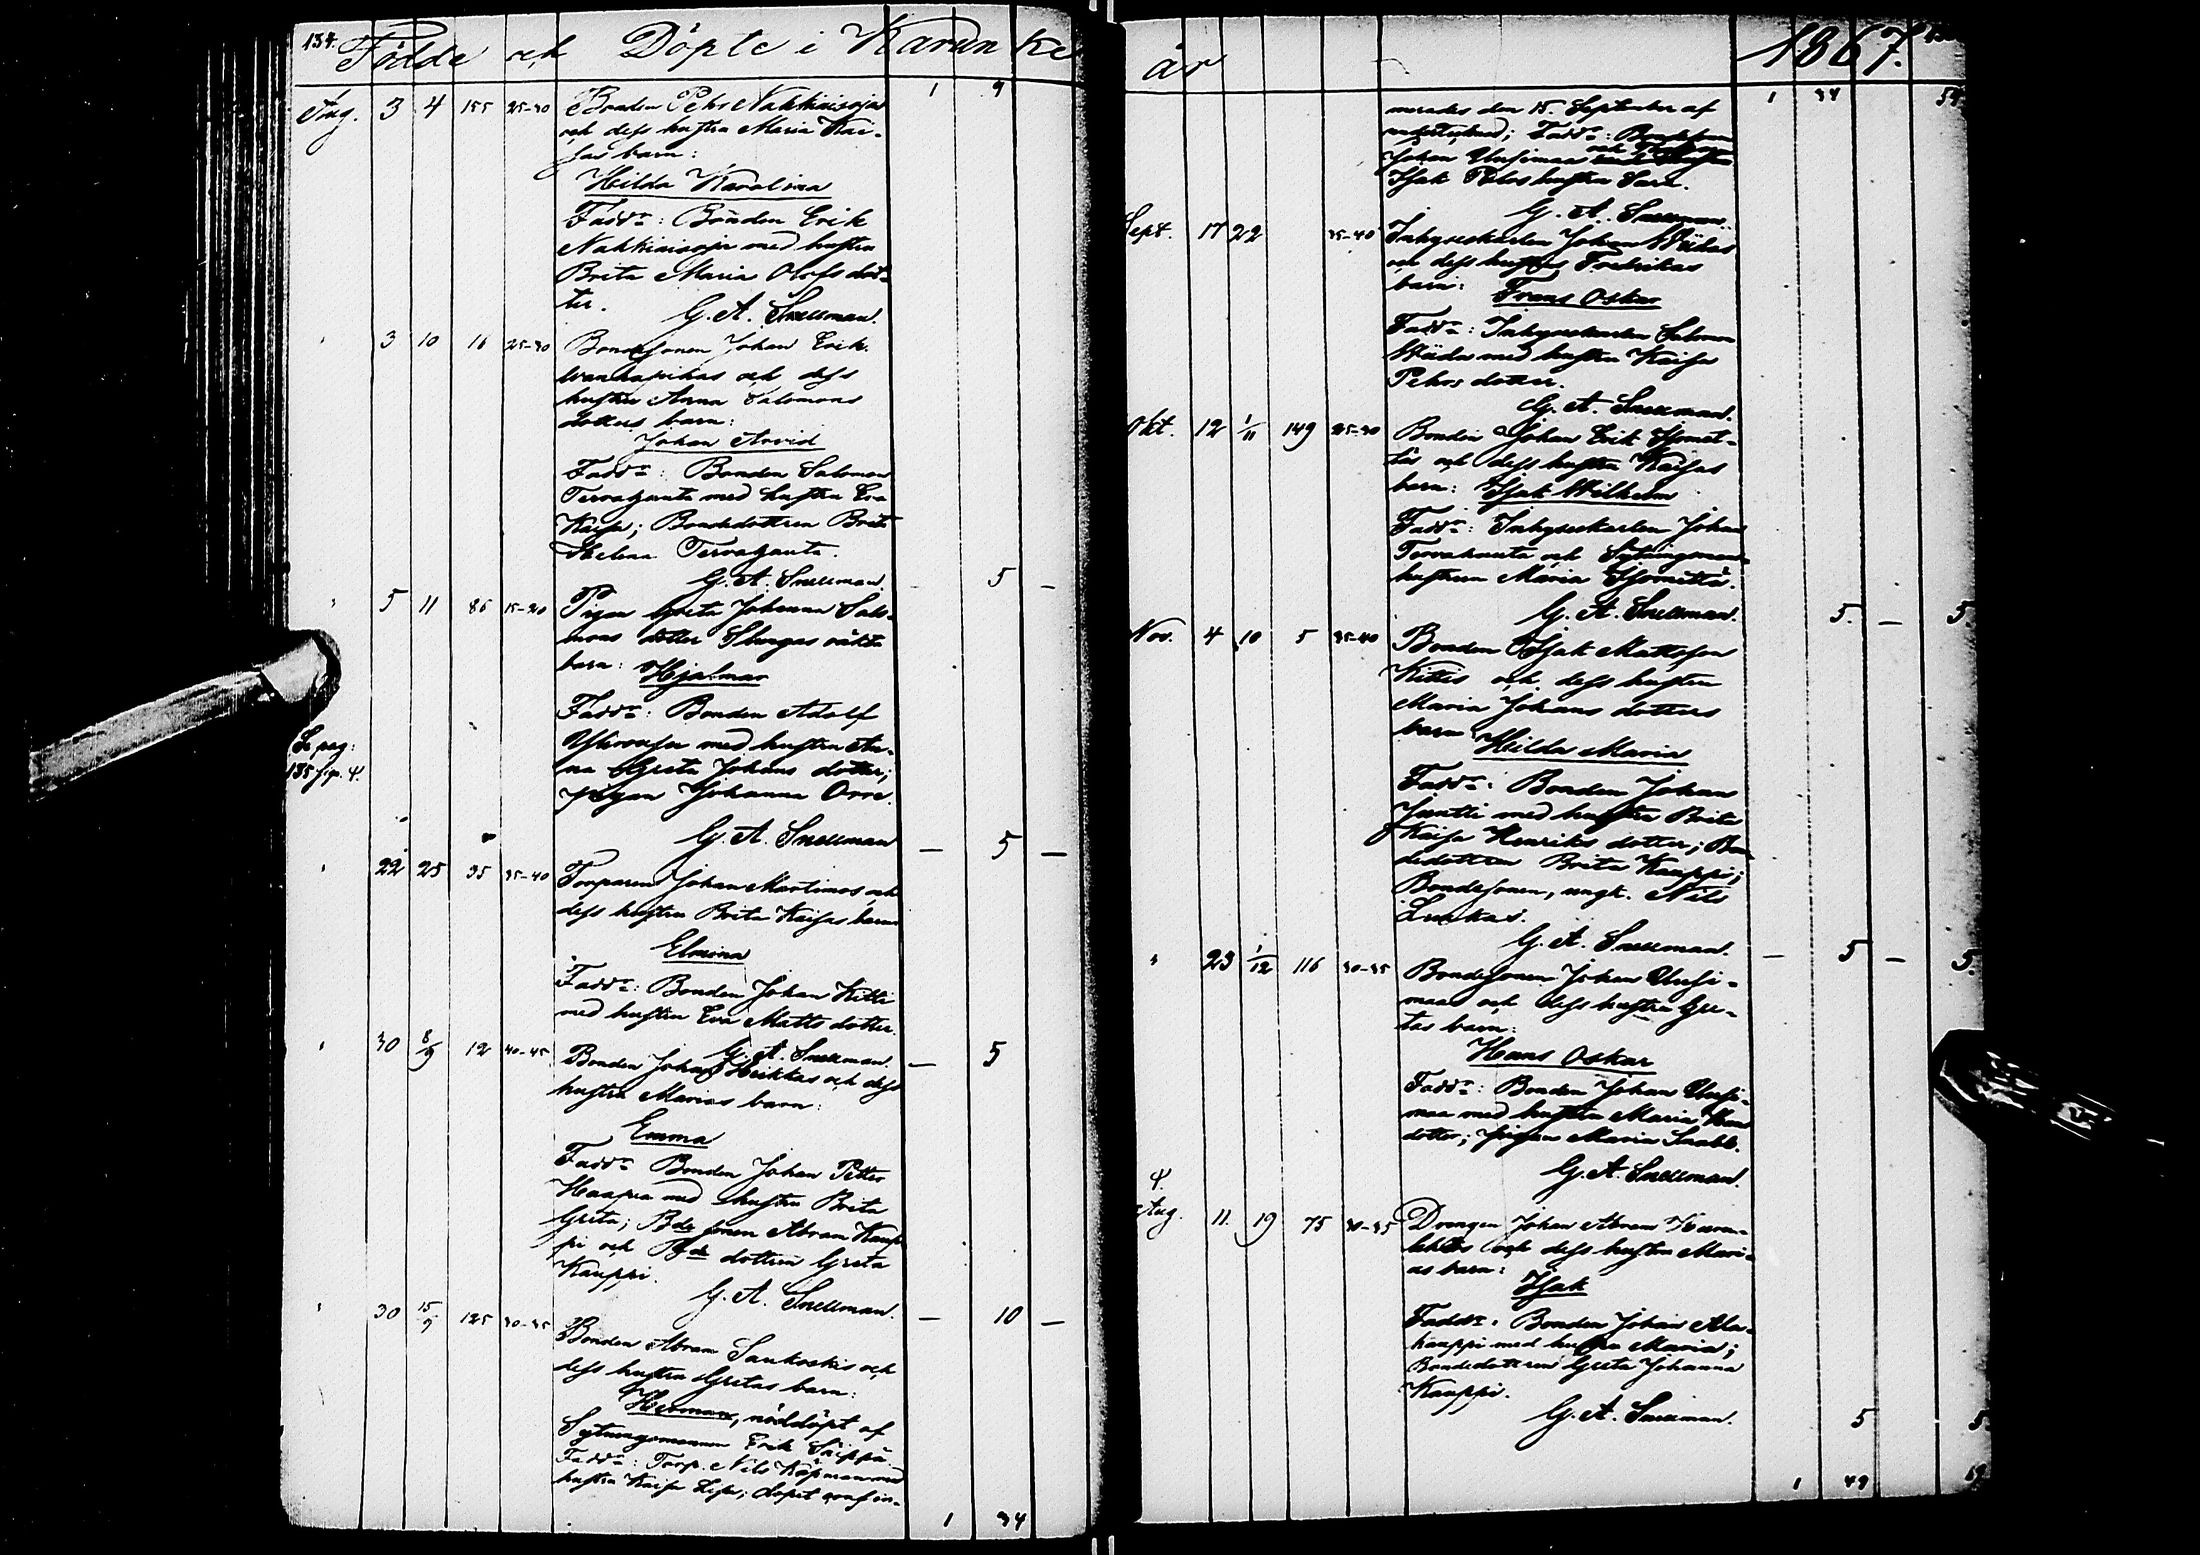 134.
Födde och Döpte i Karunki
Aug. 3 4 155 25-30 Bonden Pehr Nakkiaisoja 1 9
och dess hustru Maria Kai-
sas barn:
Hilda Karolina
Faddr: Bonden Erik
Nakkiaisoja med hustru
Brita Maria Olofs dot-
ter.
G. A. Snellman.
" 3 10 16 25-30 Bondesonen Johan Erik
och dess
hustru Anna Salomons
dotters barn:
Johan Arvid
Faddr: Bonden Salomon
Tervahauta med hustru Eva
Kaisa; Bondedottren Brita
Helena Tervahauta.
G. A. Snellman. — 5 —
" 5 11 86 15-20 Pigan Greta Johanna Salo-
mons dotter oäkta
barn: Hjalmar
Faddr: Bonden Adolf
med hustru An-
na Greta Johans dotter;
pigan Johanna Orre.
G. A. Snellman — 5 —
Se pag:
135 sign. 4.
" 22 25 35 35-40 Torparen Johan Martimos och
dess hustru Brita Kaisas barn
Elmina
Faddr: Bonden Johan Kitti
med hustru Eva Matts dotter.
G. A. Snellman. — 5
" 30 8/9 12 40-45 Bonden Johan Heikkas och dess
hustru Marias barn:
Emma
Faddr Bonden Johan Petter
Haapa med hustru Brita
Greta; Bde sonen Abram Kaup-
pi och Bde dottren Greta
Kauppi.
G. A. Snellman. — 10 —
" 30 15/9 125 30-35 Bonden Abram Sankoskis och
dess hustru Gretas barn:
Herman, nöddöpt af
Sytningsmannen Erik Säippä
Faddr: Torp. Nils Köpman med
hustru Kaisa Lisa; dopet confir-
1 34
år 1867.
merades den 15. September af 1 34 54
Faddr:
Johan Uusimaa
Isak Pehrs hustru Sara.
G. A. Snellman.
Sept. 17 22 35-40 Inhyseskarlen Johan Wiidas
och dess hustru Fredrikas
barn: Frans Oskar
Faddr: Inhyseskarlen Salomon
Wiida med hustru Kaisa
Pehrs dotter.
G. A. Snellman.
Okt. 12 1/11 149 25-30 Bonden Johan Erik Isomet-
täs och dess hustru Kaisas
barn: Isak Wilhelm
Faddr: Inhyseskarlen Johan
Tervahauta och Sytningsmans
hustrun Maria Isomettä.
G. A. Snellman. 5. — 5.
Nov. 4 10 5 35-40 Bonden Isak Mattsson
Kittis och dess hustru
Maria Johans dotters
barn Hilda Maria
Faddr: Bonden Johan
Juntti med hustru Brita
Kaisa Henriks dotter; Bon-
dedottren Brita Kauppi;
Bondesonen, ungk. Nils
Luukas.
G. A. Snellman. — 5 — 5.
" 23 1/12 116 30-35 Bondesonen Johan Uusi-
maas och dess hustru Gre-
tas barn:
Hans Oskar
Faddr: Bonden Johan Uusi-
maa med hustru Maria
dotter; pigan Maria
G. A. Snellman.
4.
Aug. 11. 19 75 30-35 Drengen Johan Abram
och dess hustru Mari-
as barn:
Isak
Faddr: Bonden Johan Ala-
kauppi med hustru Maria;
Bondedottren Greta Johanna
Kauppi.
G. A. Snellman. 5 5
1 49